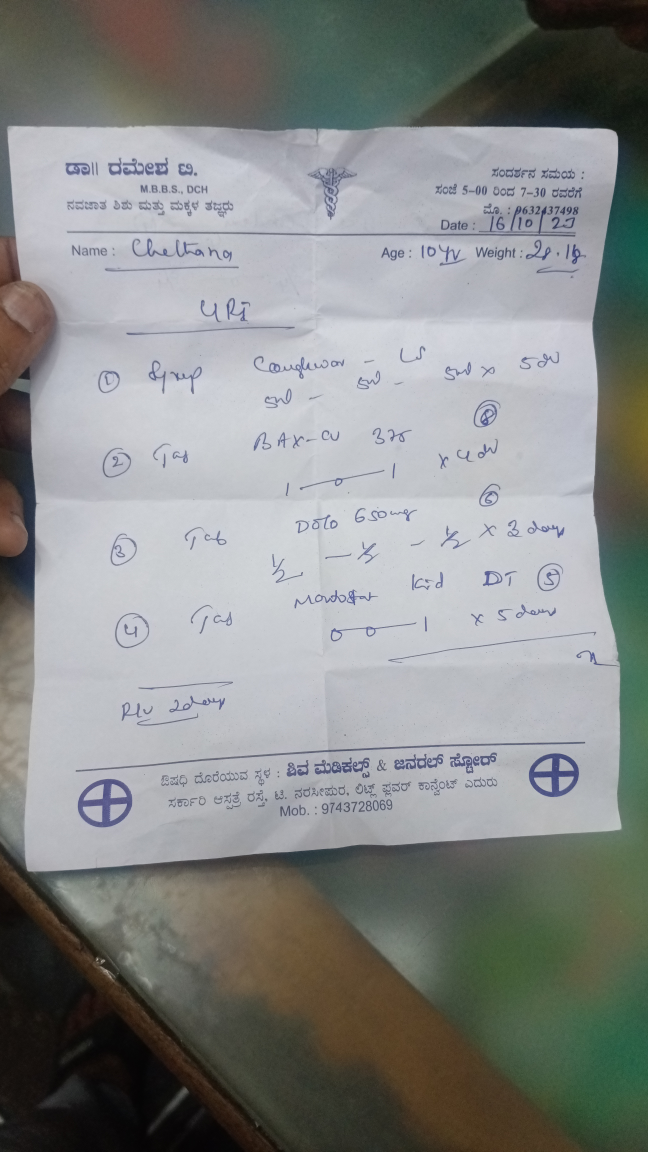 ಡಾ|| ರಮೇಶ ಟಿ.
M.B.B.S., DCH
ನವಜಾತ ಶಿಶು ಮತ್ತು ಮಕ್ಕಳ ತಜ್ಞರು
ಸಂದರ್ಶನ ಸಮಯ :
ಸಂಜೆ 5-00 ರಿಂದ 7-30 ರವರೆಗೆ
ಮೊ. : 9632437498
Date : 16/10/23
Name : Chethana Age : 10 yr Weight :
URI
① Syrup
5ml - 5ml - 5ml x 5
② Tab BAX-CV 375 ⑧
1 - 0 - 1 x 4
③ Tab Dolo 650mg ⑥
½ - ½ - ½ x 3 days
④ Tab Kid DT ⑤
0 0 - 1 x 5 days
R/v 2 days
ಔಷಧಿ ದೊರೆಯುವ ಸ್ಥಳ : ಶಿವ ಮೆಡಿಕಲ್ಸ್ & ಜನರಲ್ ಸ್ಟೋರ್
ಸರ್ಕಾರಿ ಆಸ್ಪತ್ರೆ ರಸ್ತೆ, ಟಿ. ನರಸೀಪುರ, ಲಿಟ್ಲ್ ಫ್ಲವರ್ ಕಾನ್ವೆಂಟ್ ಎದುರು
Mob. : 9743728069